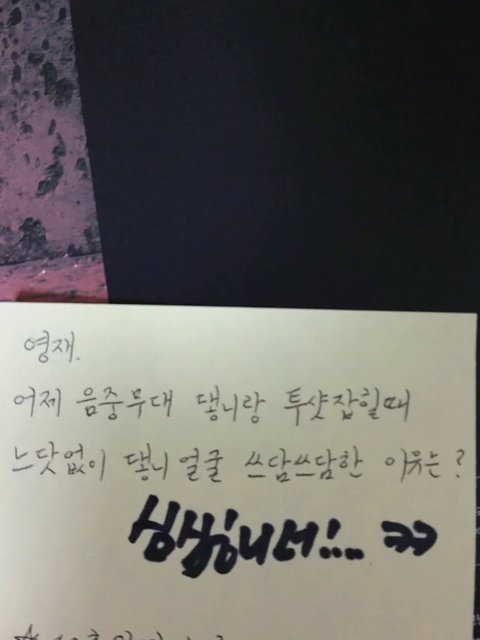 영재.
어제 음중무대 댛니랑 투샷잡힐때
느닷없이 댛니 얼굴 쓰담쓰담한 이유는?
심심하니서!... ㅋㅋ